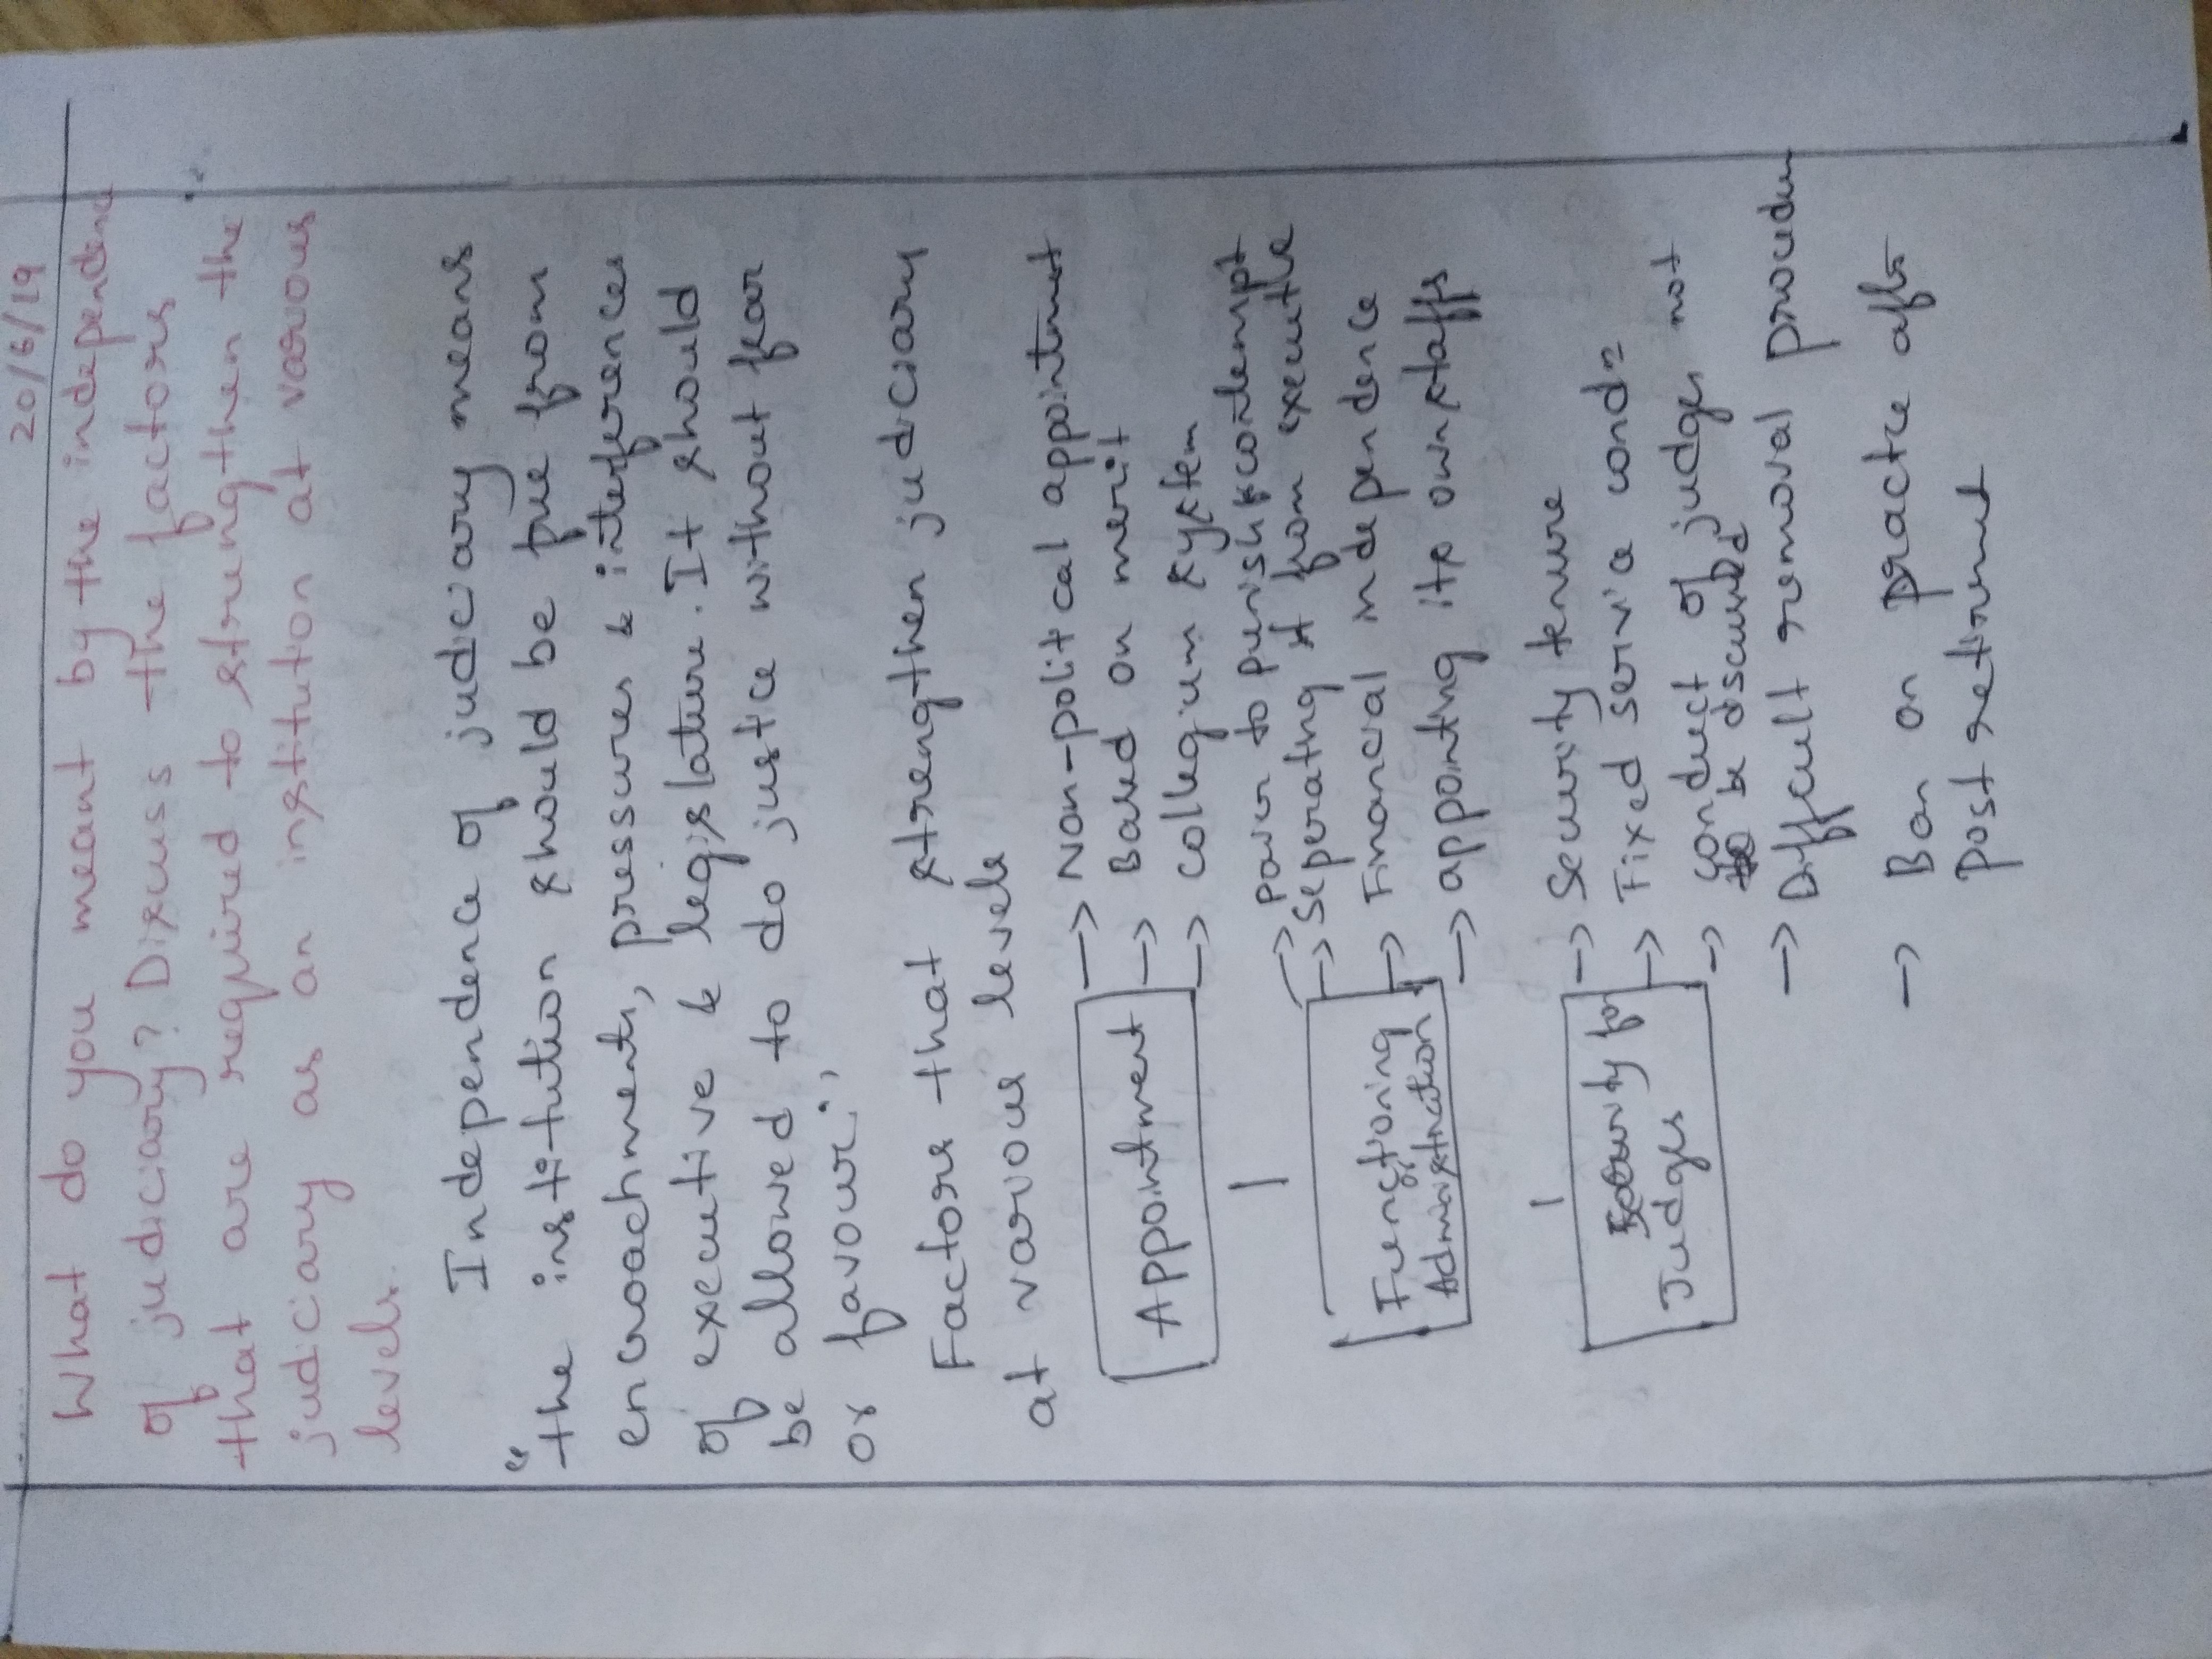 20/6/19
What do you meant by the independence
of judiciary? Discuss the factors
that are required to strengthen the
judiciary as an institution at various
levels.
Independence of judiciary means
"the institution should be free from
encroachments, pressures & interferences
of executive & legislature. It should
be allowed to do justice without fear
or favour."
Factors that strengthen judiciary
at various levels
Appointment
→ Non-political appointment
→ Based on merit
→ Collegium system
Functioning
Administration
→ power to punish & contempt
→ Seperating it from executive
→ Financial independence
→ appointing its own staffs
Security for
Judges
→ Security tenure
→ Fixed service condn
→ conduct of judges not
be discussed
→ Difficult removal procedure
→ Ban on practice after
post retirement